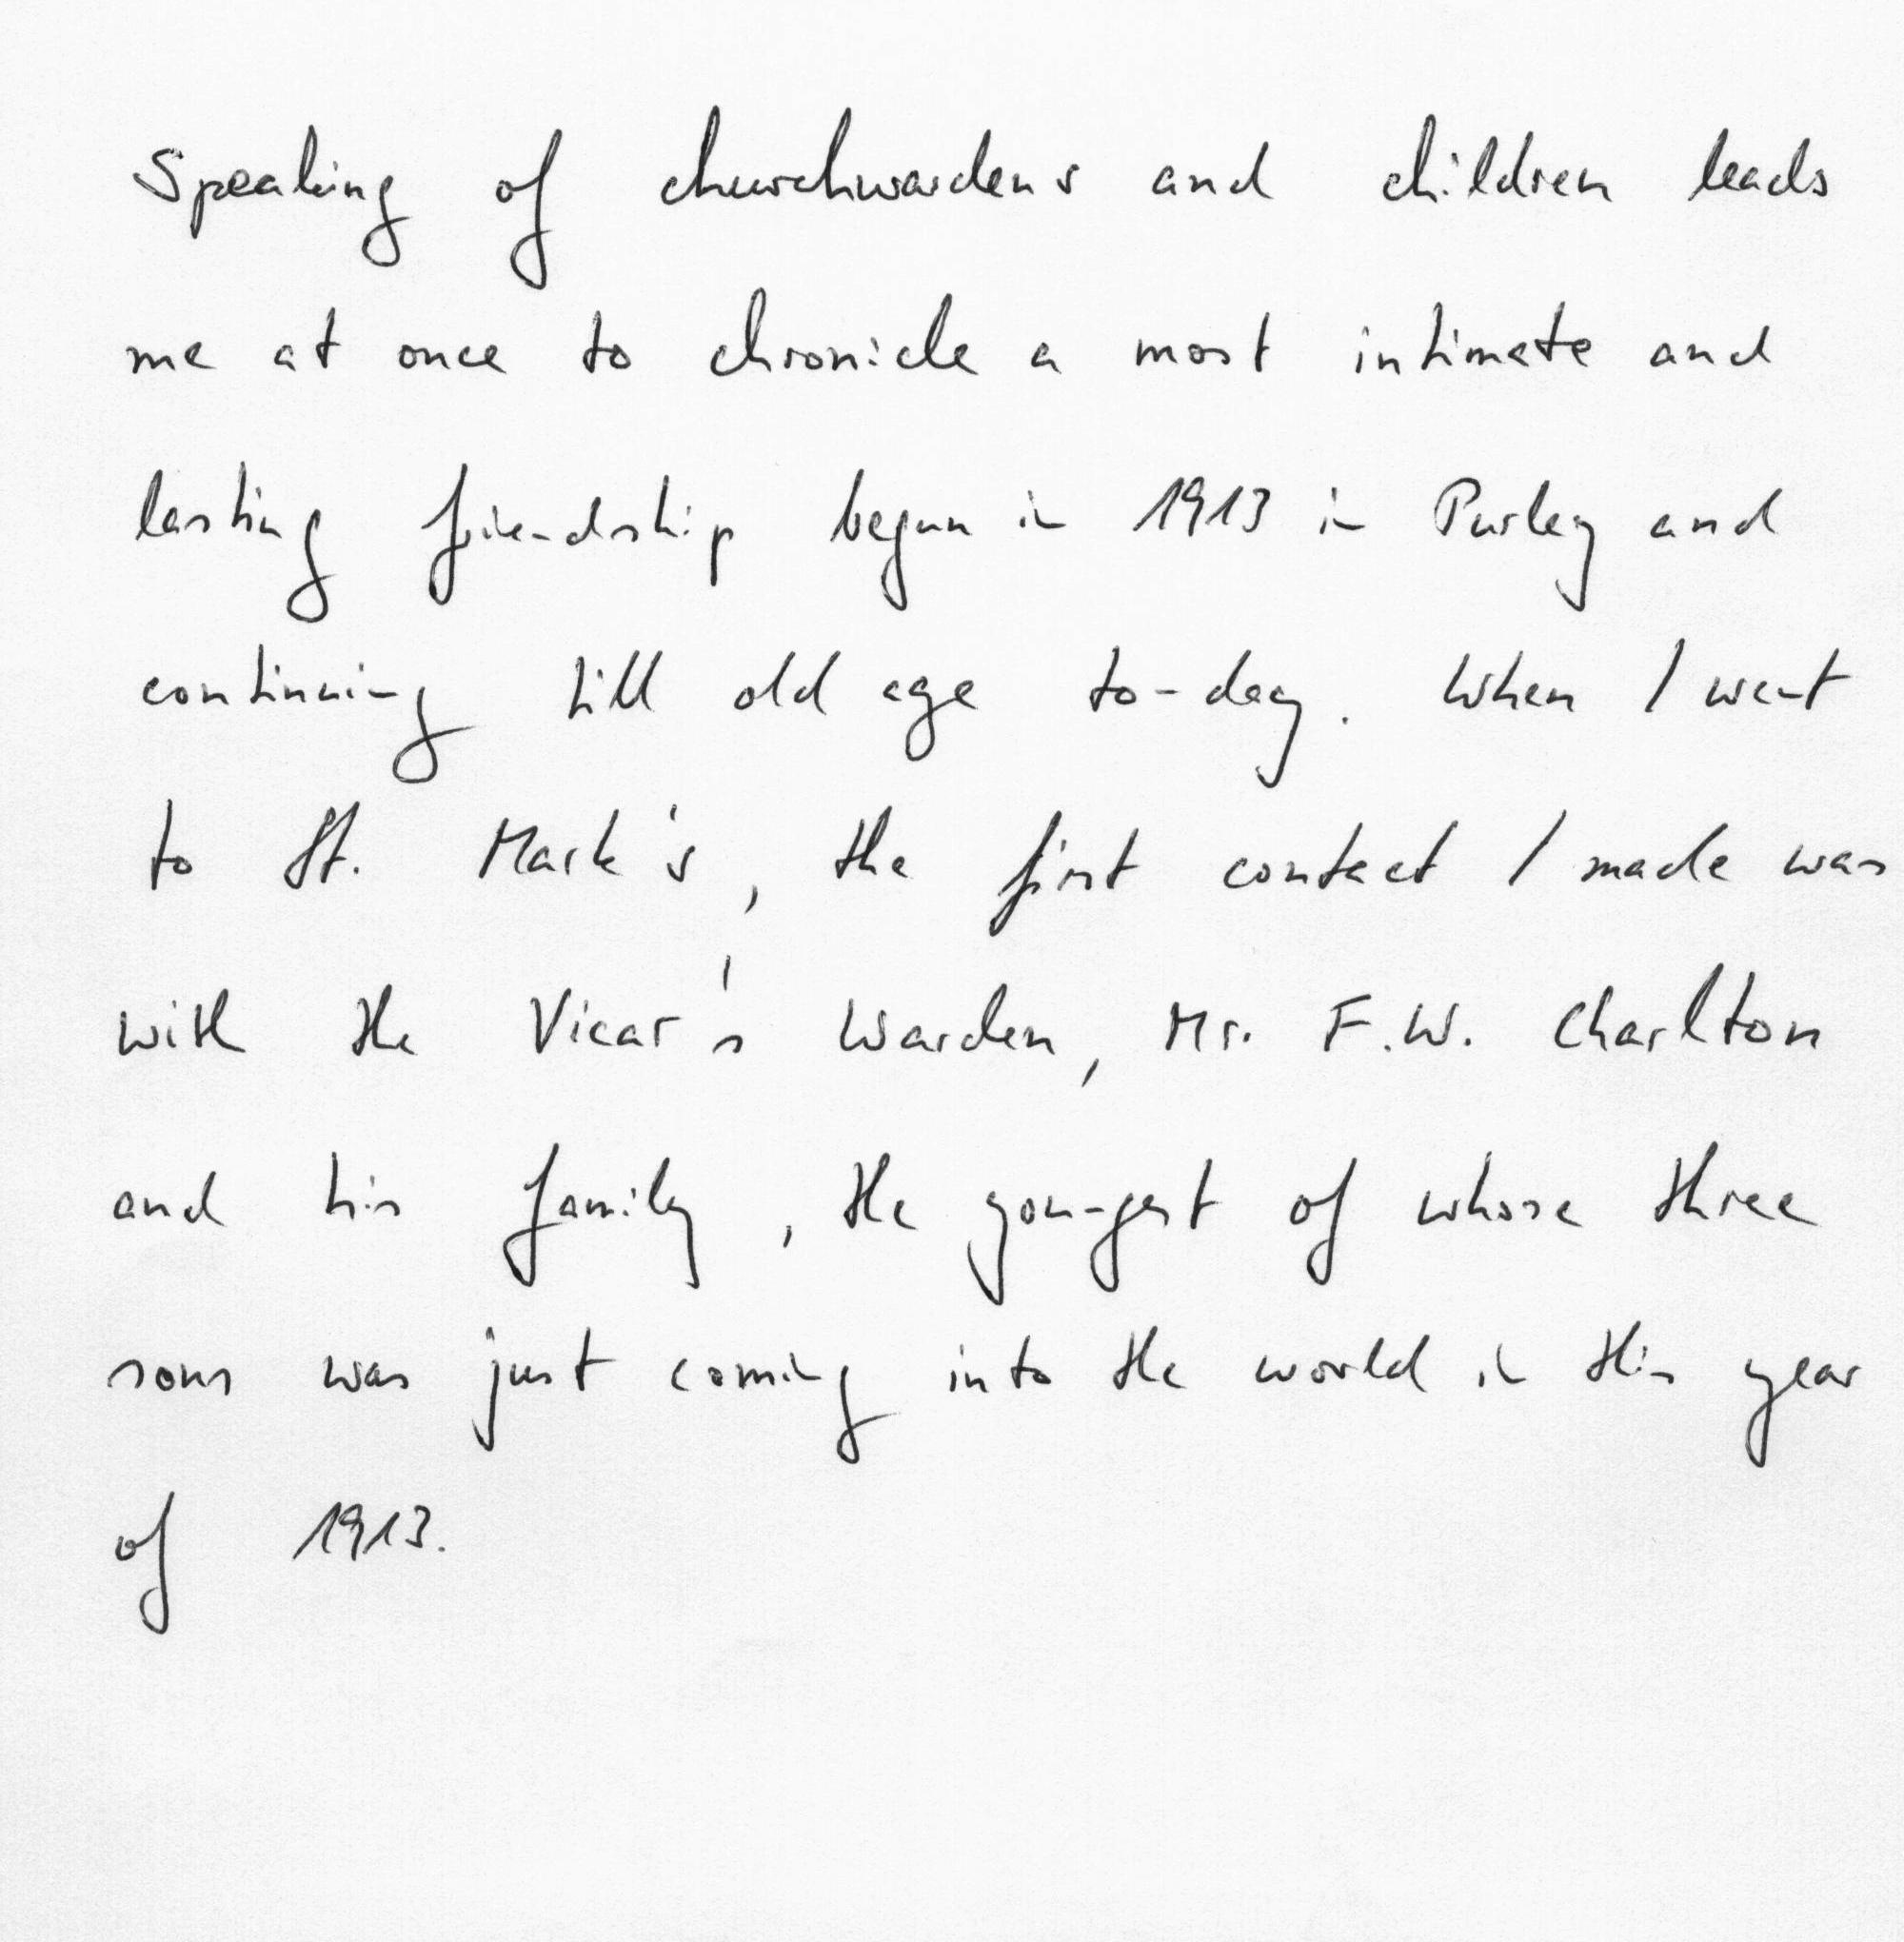 Speaking of churchwardens and children leads
me at once to chronicle a most intimate and
lasting friendship begun in 1913 in Purley and
continuing till old age to-day. When I went
to St. Mark's, the first contact I made was
with the Vicar's Warden, Mr. F.W. Charlton
and his family, the youngest of whose three
sons was just coming into the world in this year
of 1913.